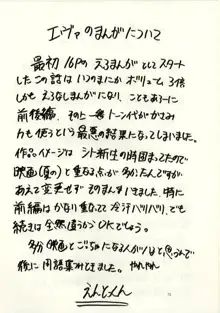 エヴァのまんがについて
最初16Pのえろまんがとしてスタート
したこの話はいつのまにかボリューム3倍
しかもえろなしまんがになり、こともあろーに
前後編、その上トーン代がかさみ
力も使うという最悪の結果になってしまいました。
作品イメージはシト新生の時固まってたので
映画(夏の)と重なる点が多かったんですが
あえて変更せずそのまんまいきました。特に
前編はかなり重なってて冷汗バリバリ、でも
続きは全然違うからOKでしょう。
多分映画とごっちゃになる人がいると思うんで
後に用語集みたいのをつけときました。
えんどっくん